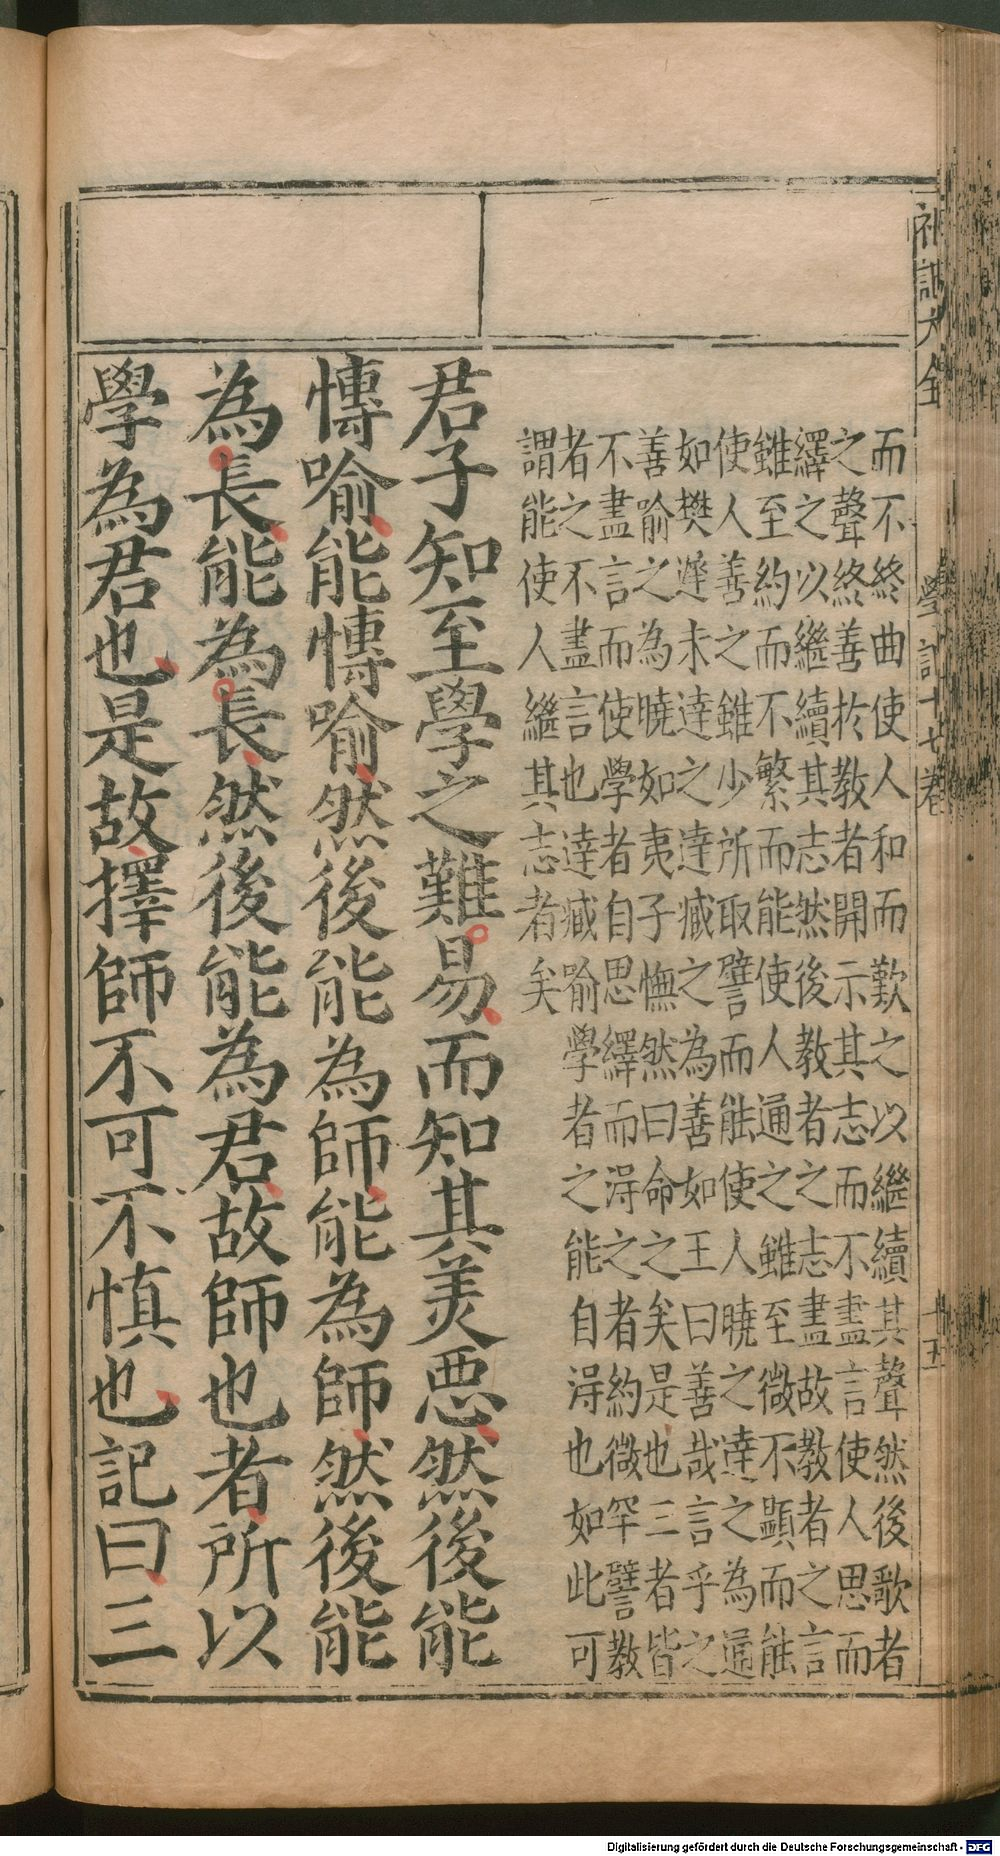 礼記大全 學記十七卷 十五
而不終曲使人和而歎之以繼續其聲然後歌者
之聲終善於教者開示其志而不盡言使人思而
繹之以繼續其志然後教者之志盡故教者之言
雖至約而不繁而能使人通之雖至微不顯而能
使人善之雖少所取譬而能使人曉之達之為通
如樊遲未達之達臧之為善如王曰善哉言乎之
善喻之為曉如夷子憮然曰命之矣是也三者皆
不盡言而使學者自思繹而淂之者約微罕譬教
者之不盡言也達臧喻學者之能自淂也如此可
謂能使人繼其志者矣
君子知至學之難易而知其美悪然後能
愽喻能愽喻然後能為師能為師然後能
為長能為長然後能為君故師也者所以
學為君也是故擇師不可不慎也記曰三
Digitalisierung gefördert durch die Deutsche Forschungsgemeinschaft - DFG